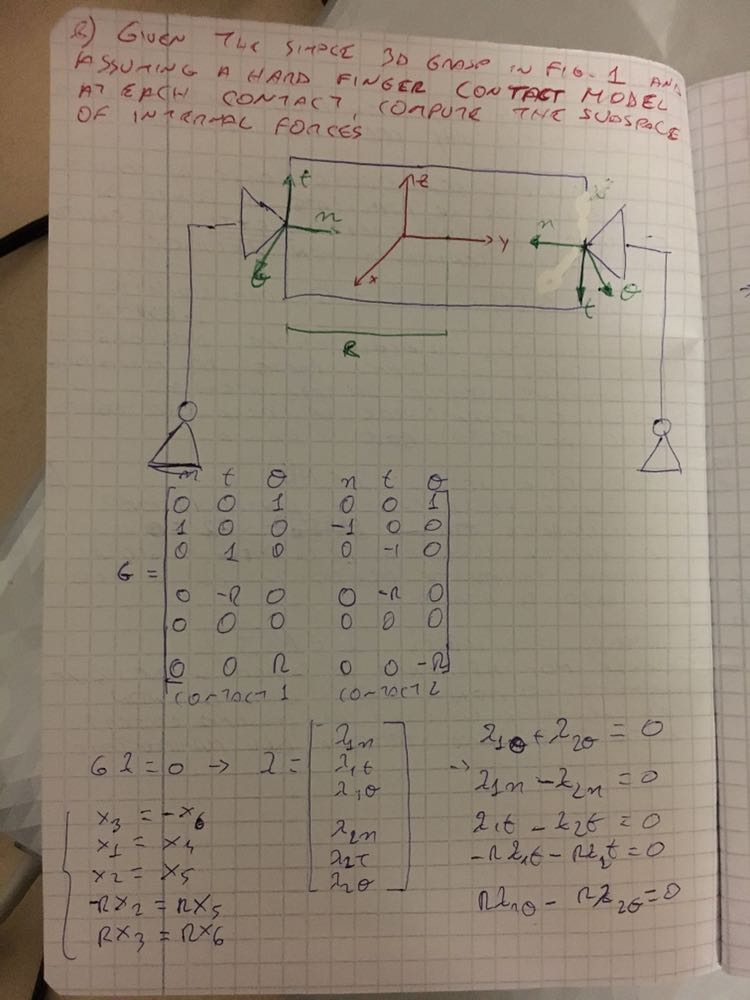 2) GIVEN THE SIMPLE 3D GRASP IN FIG. 1 AND
ASSUMING A HARD FINGER CONTACT MODEL
AT EACH CONTACT, COMPUTE THE SUBSPACE
OF INTERNAL FORCES
t
n
θ
z
y
x
n
t
θ
R
n t θ n t θ
0 0 1 0 0 1
1 0 0 -1 0 0
0 1 0 0 -1 0
G =
0 -R 0 0 -R 0
0 0 0 0 0 0
0 0 R 0 0 -R
CONTACT 1 CONTACT 2
G λ = 0 → λ =
λ1n
λ1t
λ1θ
λ2n
λ2t
λ2θ
→ λ1θ + λ2θ = 0
λ1n - λ2n = 0
λ1t - λ2t = 0
-Rλ1t - Rλ2t = 0
Rλ1θ - Rλ2θ = 0
x3 = -x6
x1 = x4
x2 = x5
-Rx2 = Rx5
Rx3 = Rx6